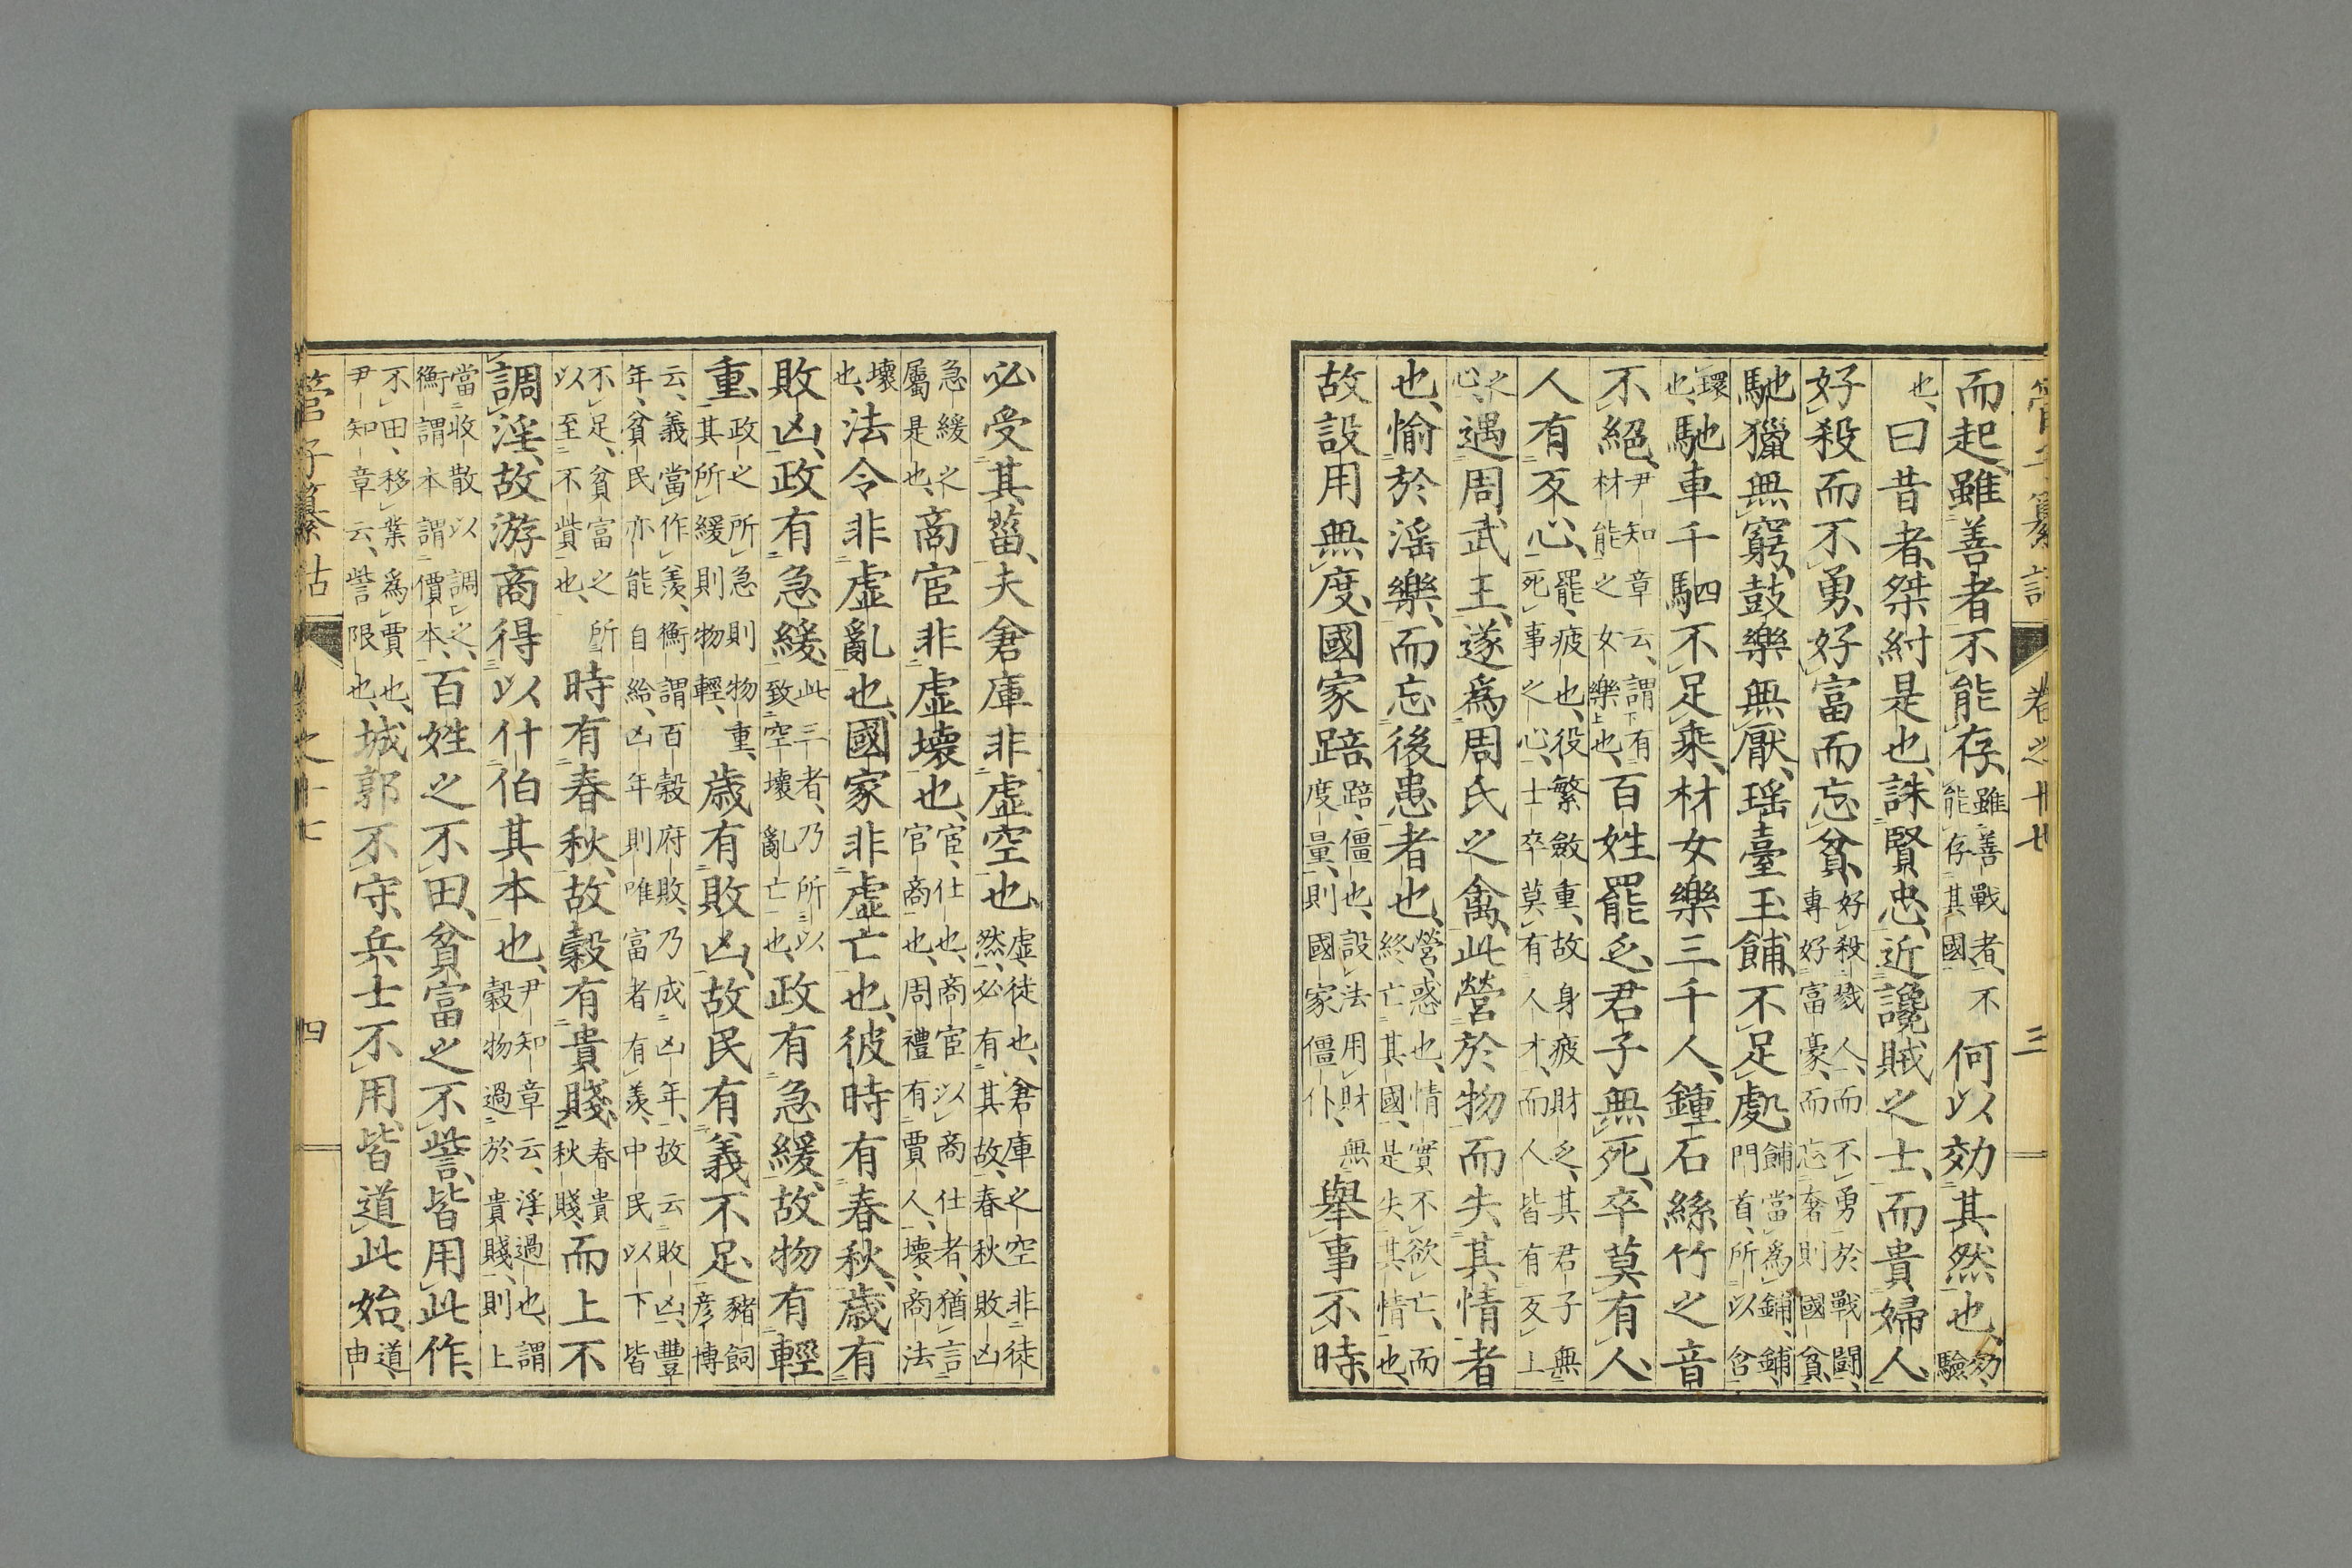 管子纂詁 卷之十七 三
而起、雖善者不能存、雖善戰者、不能存其國 何以効其然也、効、驗
也、曰昔者、桀紂是也、誅賢忠、近讒賊之士、而貴婦人、
好殺而不勇、好富而忘貧、好殺戮人、而不勇於戰鬪、專好富豪、而忘奢則國貧、
馳獵無窮、鼓樂無厭、瑶臺玉餔、不足處、餔當爲鋪、鋪、門首、所以㕣
環也、馳車千駟不足乘、材女樂三千人、鍾石絲竹之音
不絕、尹知章云、謂有材能之女樂也、百姓罷乏、君子無死、卒莫有人、
人有反心、罷、疲也、役繁斂重、故身疲財乏、其君子無死事之心、士卒莫有人才、而人皆有反上
之心、遇周武王、遂爲周氏之禽、此營於物而失其情者
也、愉於淫樂、而忘後患者也、營、惑也、情實不欲亡、而終亡其國、是失其情也、
故設用無度、國家踣、踣、僵也、設法用財無度量、則國家僵仆、 舉事不時、
必受其菑、夫倉庫非虚空也、虚、徒也、倉庫之空非徒然、必有其故、春秋敗凶
急緩之屬是也、商宦非虚壞也、宦、仕也、商宦以商仕者、猶言官商也、周禮有賈人、壞、商法
壞也、法令非虚亂也、國家非虚亡也、彼時有春秋、歲有
敗凶、政有急緩、此三者、乃所以致空壞亂亡也、政有急緩、故物有輕
重、政之所急則物重、其所緩則物輕、 歲有敗凶、故民有義不足、豬飼彦博
云、義當作羨、衡謂百穀府敗、乃成凶年、故云敗凶、豐年、貧民亦能自給、凶年則唯富者有羨、中民以下皆
不足、貧富之所以至不貲也、 時有春秋、故穀有貴賤、春貴秋賤、而上不
調淫、故游商得以什伯其本也、尹知章云、淫、過也、謂穀物過於貴賤、則上
當收散以調之、衡謂本謂價本、百姓之不田、貧富之不訾、皆用此作、
不田、移業爲賈也、尹知章云、訾限也、城郭不守、兵士不用、皆道此始、道由
管子纂詁 卷之十七 四